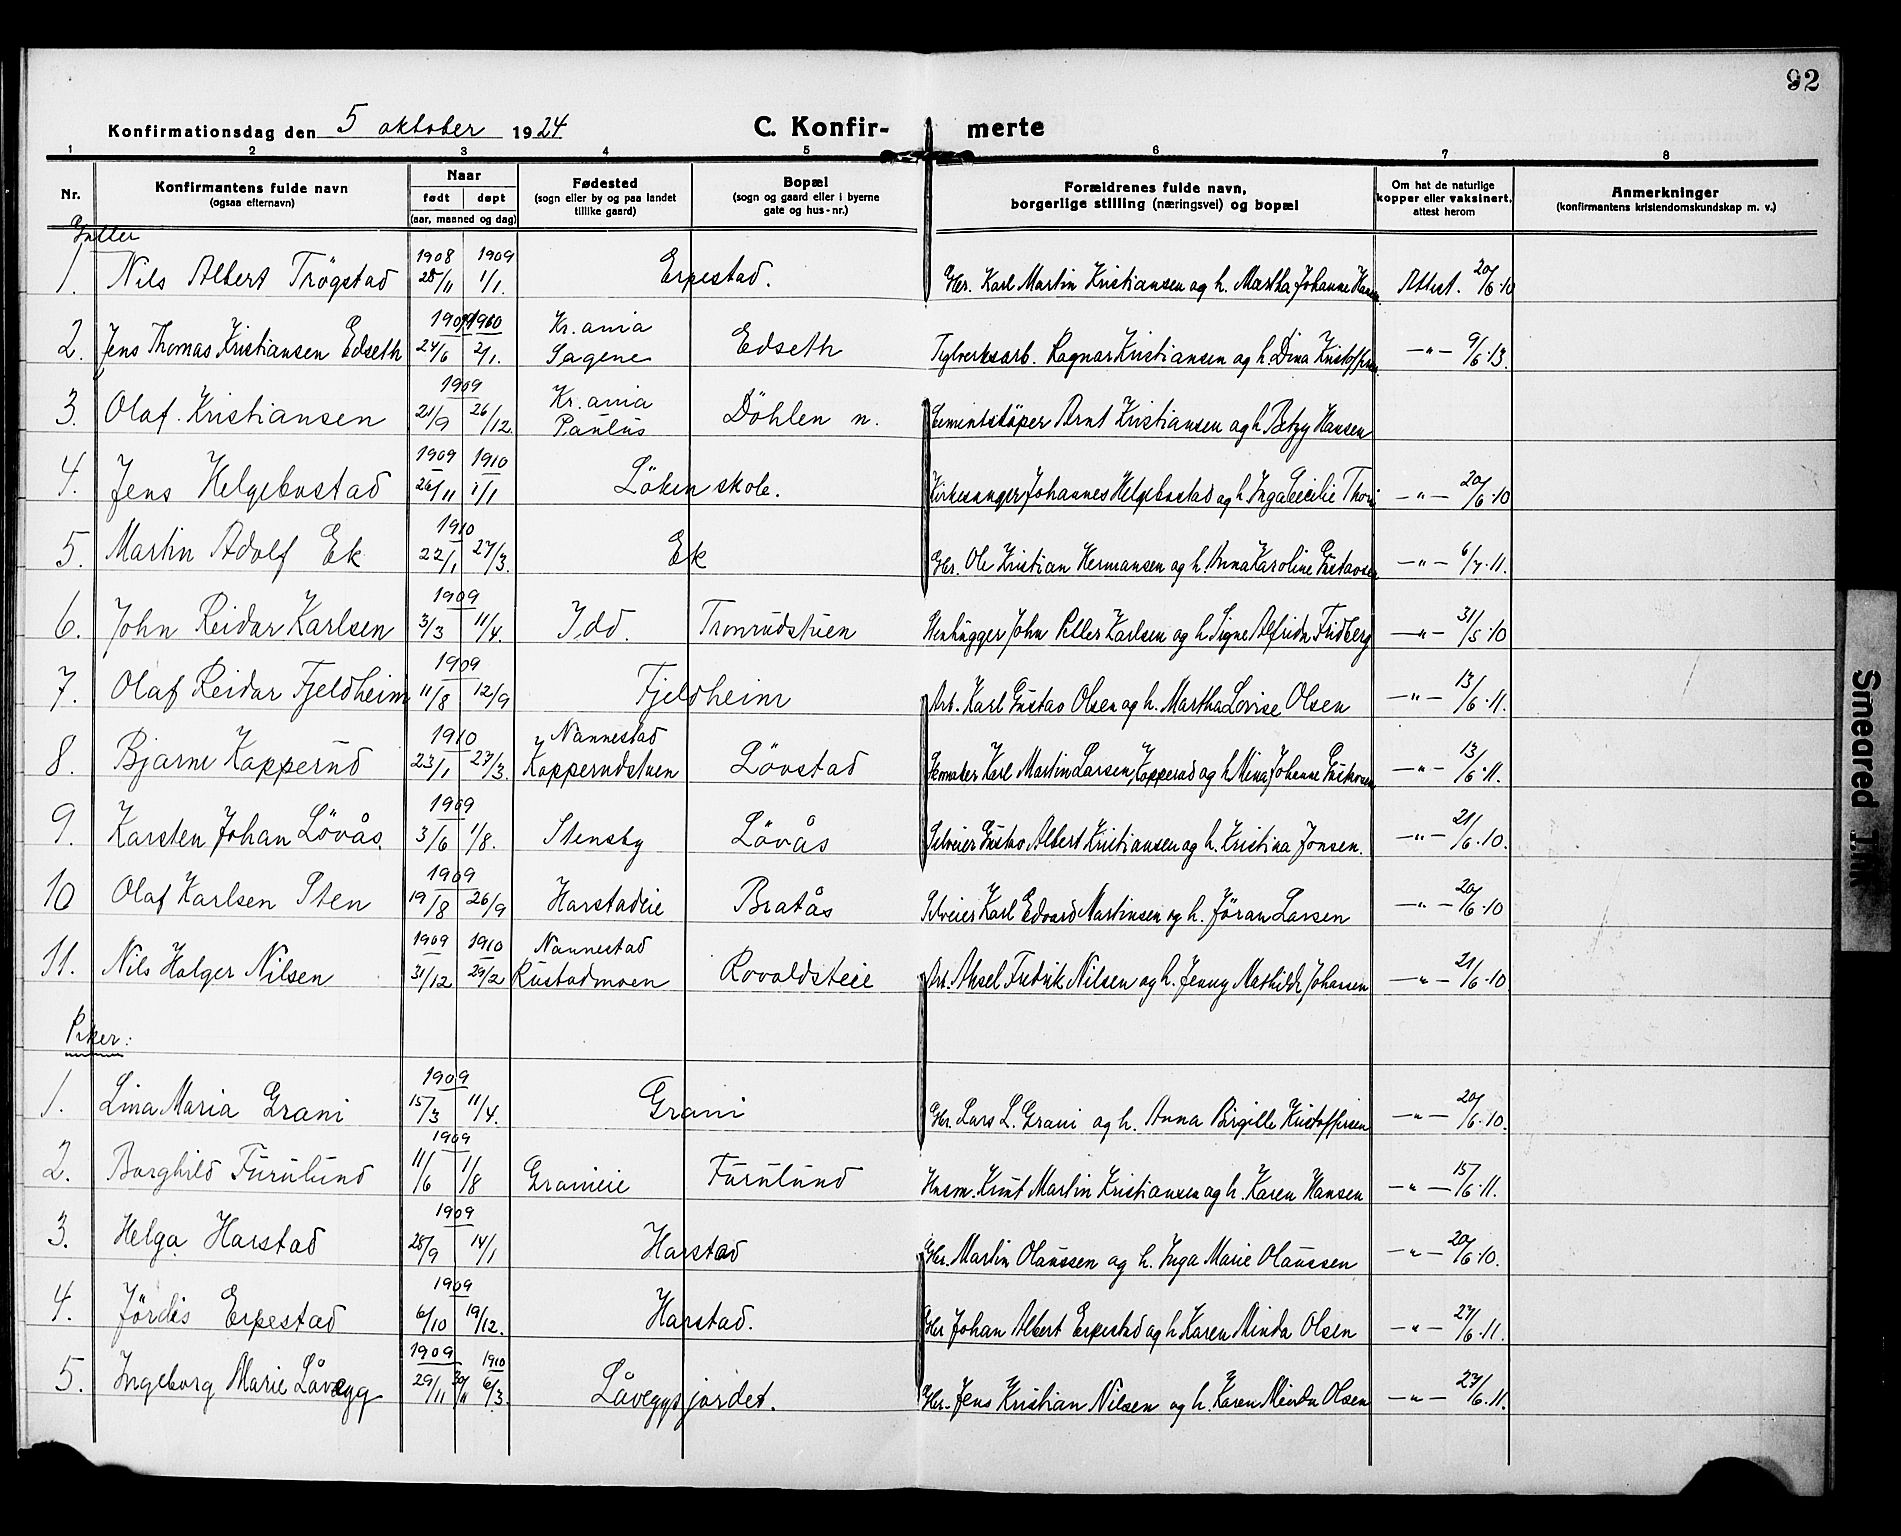 92
Konfirmationsdag den 5 oktober 1924 C. Konfir- merte
1 2 3 4 5 6 7 8
Nr. Konfirmantens fulde navn (ogsaa efternavn) Naar født døpt (aar, maaned og dag) Fødested (sogn eller by og paa landet tillike gaard) Bopæl (sogn og gaard eller i byerne gate og hus-nr.) Forældrenes fulde navn, borgerlige stilling (næringsvei) og bopæl Om hat de naturlige kopper eller vaksinert, attest herom Anmerkninger (konfirmantens kristendomskundskap m. v.)
Gutter
1. Nils Albert Trögstad 1908 28/11 1909 1/1. Erpestad. Gbr. Karl Martin Kristiansen og h. Martha Johanne Hansen Attest. 20/6.10
2. Jens Thomas Kristiansen Edseth 1909 24/6 1910 2/1. Kr.ania Sagene Edseth Teglverksarb. Ragnar Kristiansen og h. Dina Kristoffersen -"- 9/6.13.
3. Olaf Kristiansen 1909 21/9 26/12. Kr.ania Paulus Döhlen n. Sementstöper Arnt Kristiansen og h. Betzy Hansen
4. Jens Helgebostad 1909 26/11 1910 1/1 Löken skole. Kirkesanger Johannes Helgebostad og h. Inga Cecilie -"- 20/6.10
5. Martin Adolf Ek 1910 22/1 27/3. Ek Gbr. Ole Kristian Hermansen og h. Anna Karoline Gustavsen -"- 6/7.11.
6. John Reidar Karlsen 1909 3/3 11/4. Idd. Tronrudstuen Stenhugger John Petter Karlsen og h. Signe Alfrida Fridberg -"- 31/5.10
7. Olaf Reidar Fjeldheim 1909 11/8 12/9 Fjeldheim Arb. Karl Gustav Olsen og h. Martha Lovise Olsen -"- 13/6.11.
8. Bjarne Kopperud 1910 23/1 27/3. Nannestad Kopperudstuen Lövstad Skomaker Karl Martin Larsen Kopperud og h. Mina Johanne Gustavsen -"- 13/6.11.
9. Karsten Johan Lövås 1909 3/6 1/8. Stensby Lövås Selveier Gustav Albert Kristiansen og h. Kristina Jonsen. -"- 21/6.10.
10 Olaf Karlsen Sten 1909 19/8 26/9 Harstadeie Bratås Selveier Karl Edvard Martinsen og h. Jöran Larsen -"- 20/6.10
11. Nils Holger Nilsen 1909 31/12 1910 29/2 Nannestad Rustadmoen Rovoldseie Arb. Aksel Fredrik Nilsen og h. Jenny Mathilde Johansen -"- 21/6.10
Piker:
1. Lina Maria Grani 1909 15/3 11/4. Grani Gbr. Lars L. Grani og h. Anna Birgitte Kristoffersen -"- 20/6.10.
2. Borghild Furulund 1909 11/6 1/8 Granieie Furulund Husm. Knut Martin Kristiansen og h. Karen Hansen -"- 15/6.11.
3. Helga Harstad 1909 28/9 14/1 Harstad Gbr. Martin Olaussen og h. Inga Marie Olaussen -"- 20/6.10.
4. Jördis Erpestad 1909 6/10 19/12. Harstad. Gbr Johan Albert Erpestad og h. Karen Minda Olsen -"- 27/6.11.
5. Ingeborg Marie Låvegg 1909 29/11 30/11 1910 6/3. Låveggsjordet. Gbr. Jens Kristian Nilsen og h. Karen Minda Olsen -"- 27/6.11.
Smeared Ink